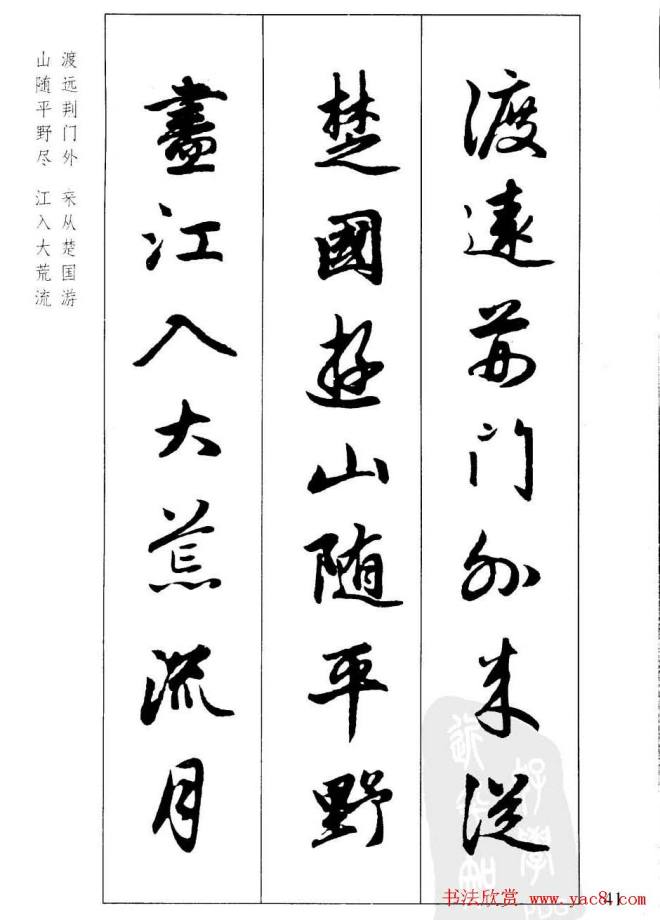 渡遠荊門外来從
楚國遊山随平野
盡江入大荒流月
渡远荆门外 来从楚国游
山随平野尽 江入大荒流
41
书法欣赏 www.yac8.com